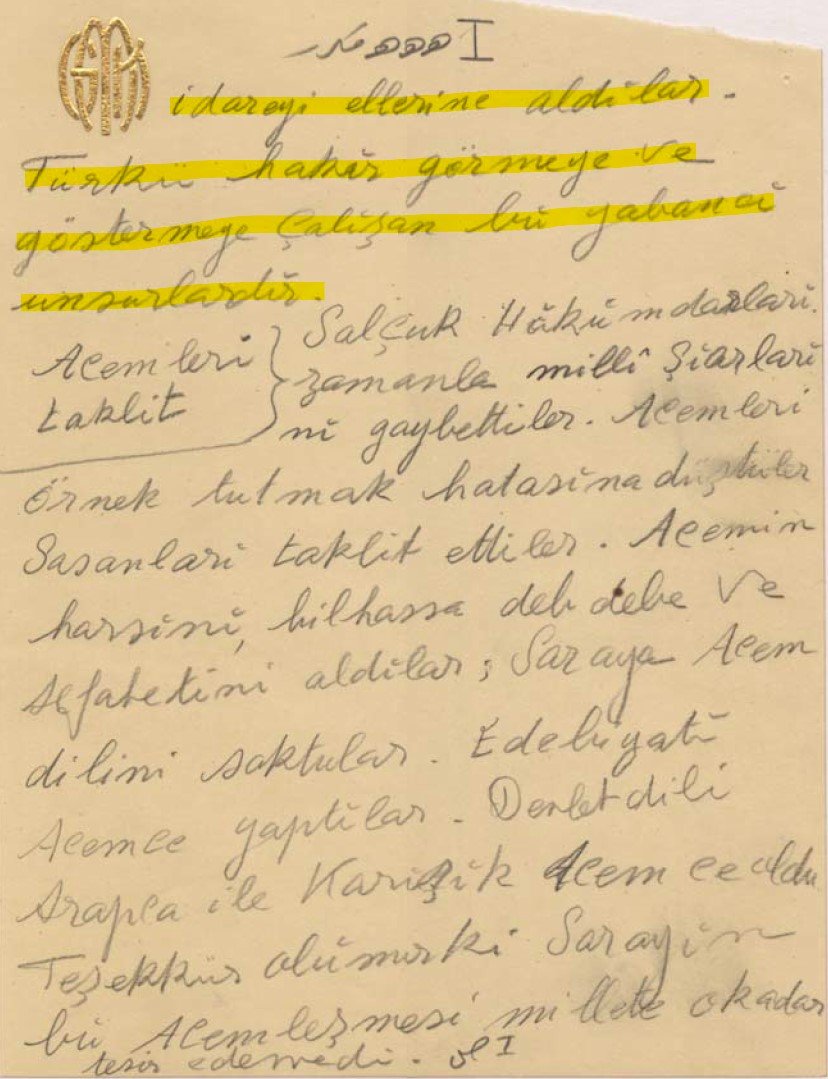 I
idareyi ellerine aldılar.
Türkü hakir görmeye ve
göstermeye çalışan bu yabancı
unsurlardır.
Acemleri
taklit
Salçuk Hükümdarları.
zamanla millî şiarları
nı gaybettiler. Acemleri
örnek tutmak hatasına düştüler
Sasanları taklit ettiler. Acemin
harsini, bilhassa debdebe ve
sefahetini aldılar; Saraya Acem
dilini soktular. Edebiyatı
Acemce yaptılar. Devlet dili
Arapça ile Karışık Acemce oldu
Teşekkür olunurki Sarayın
bu Acemleşmesi millete okadar
tesir edemedi. I